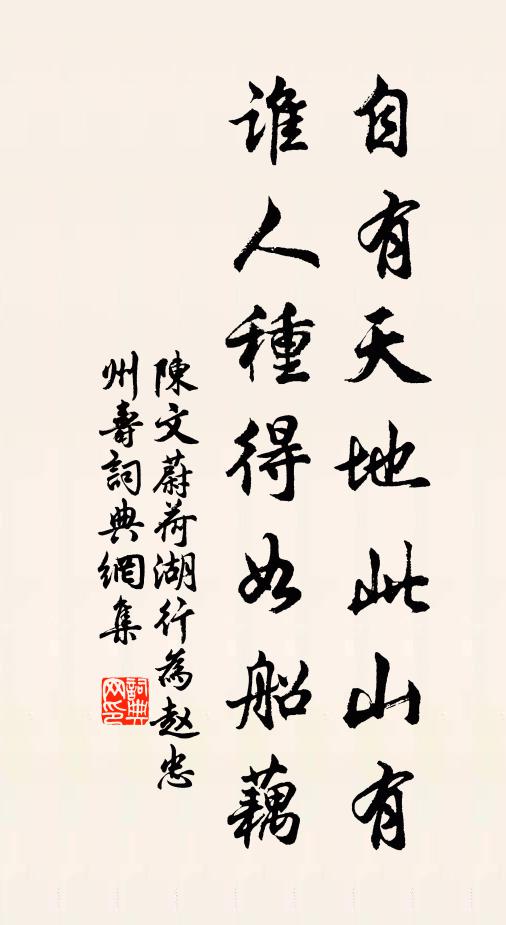 自有天地此山有
誰人種得如船藕
陳文蔚荷湖行為趙忠
州壽詞典網集
詞典
网印